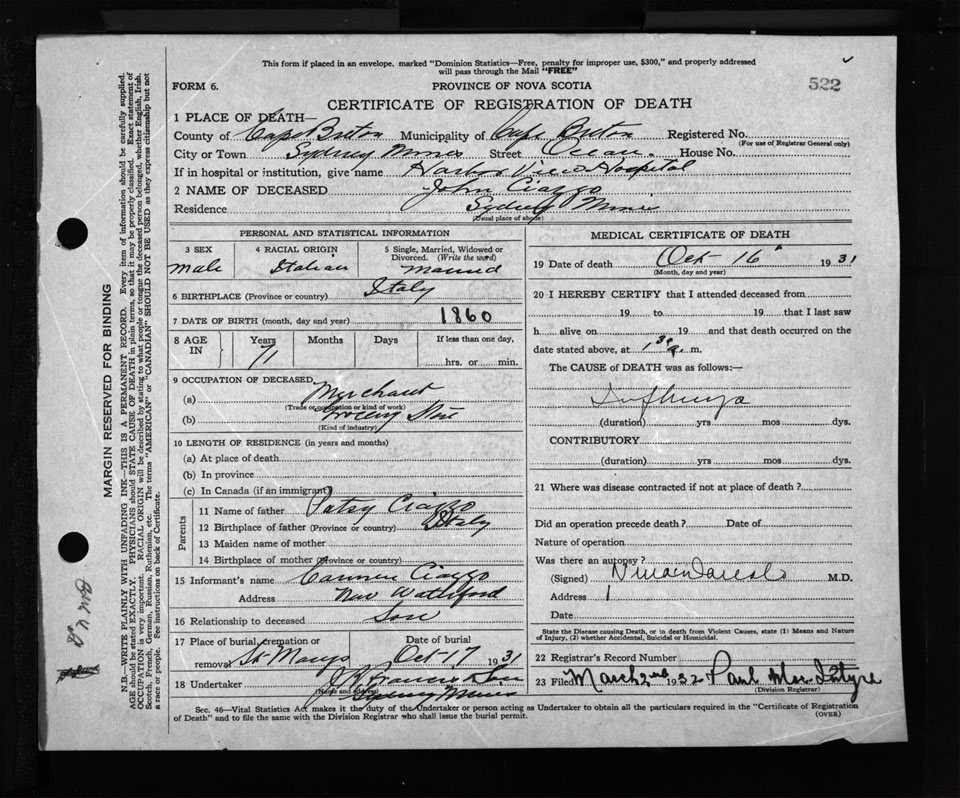 This form if placed in an envelope, marked "Dominion Statistics—Free, penalty for improper use, $300," and properly addressed
will pass through the Mail "FREE"
522
FORM 6. PROVINCE OF NOVA SCOTIA
CERTIFICATE OF REGISTRATION OF DEATH
1 PLACE OF DEATH—
County of Cape Breton Municipality of Cape Breton Registered No.
(For use of Registrar General only)
City or Town Sydney Mines Street Ocean House No.
If in hospital or institution, give name Harbor View Hospital
2 NAME OF DECEASED John Ciazzo
Residence Sydney Mines
(Usual place of abode)
PERSONAL AND STATISTICAL INFORMATION
3 SEX 4 RACIAL ORIGIN 5 Single, Married, Widowed or
Divorced. (Write the word)
Male Italian Married
6 BIRTHPLACE (Province or country) Italy
7 DATE OF BIRTH (month, day and year) 1860
8 AGE IN Years Months Days If less than one day,
71 hrs. or min.
9 OCCUPATION OF DECEASED
(a) Merchant
(Trade or occupation or kind of work)
(b) Grocery Store
(Kind of industry)
10 LENGTH OF RESIDENCE (in years and months)
(a) At place of death
(b) In province
(c) In Canada (if an immigrant)
Parents
11 Name of father Patsy Ciazzo
12 Birthplace of father (Province or country) Italy
13 Maiden name of mother
14 Birthplace of mother (Province or country)
15 Informant's name Carmen Ciazzo
Address New Waterford
16 Relationship to deceased Son
17 Place of burial, cremation or Date of burial
removal St Marys Oct 17 1931
18 Undertaker J R Francis & Son
(Name and address)
Sydney Mines
MEDICAL CERTIFICATE OF DEATH
19 Date of death Oct 16" 1931
(Month, day and year)
20 I HEREBY CERTIFY that I attended deceased from
19 to 19 that I last saw
h alive on 19 and that death occurred on
date stated above, at 1 30 a. m.
The CAUSE of DEATH was as follows:—
(duration) yrs mos dys.
CONTRIBUTORY
(duration) yrs mos dys.
21 Where was disease contracted if not at place of death?
Did an operation precede death? Date of
Nature of operation
Was there an autopsy?
(Signed) M.D.
Address
Date
State the Disease causing Death, or in death from Violent Causes, state (1) Means and Nature
of Injury, (2) whether Accidental, Suicidal or Homicidal.
22 Registrar's Record Number
23 Filed March 2nd 1932 Paul MacIntyre
(Division Registrar)
Sec. 46—Vital Statistics Act makes it the duty of the Undertaker or person acting as Undertaker to obtain all the particulars required in the "Certificate of Registration
of Death" and to file the same with the Division Registrar who shall issue the burial permit. (OVER)
MARGIN RESERVED FOR BINDING
N.B.—WRITE PLAINLY WITH UNFADING INK—THIS IS A PERMANENT RECORD. Every item of information should be carefully supplied.
AGE should be stated EXACTLY. PHYSICIANS should STATE CAUSE OF DEATH in plain terms, so that it may be properly classified. Exact statement of
OCCUPATION is very important. RACIAL ORIGIN will be described by stating to what people or tongue the deceased person belonged, whether English, Irish,
Scotch, French, German, Russian, Ruthenian, etc. The terms "AMERICAN" or "CANADIAN" SHOULD NOT BE USED as they express citizenship but not
a race or people. See instructions on back of Certificate.